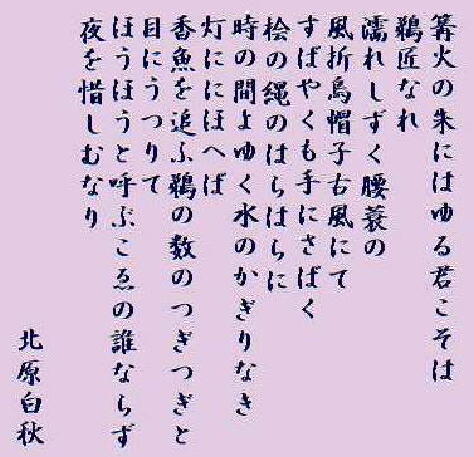 篝火の朱にはゆる君こそは
鵜匠なれ
濡れしずく腰蓑の
風折烏帽子古風にて
すばやくも手にさばく
桧の縄のはらはらに
時の間よゆく水のかぎりなき
灯ににほへば
香魚を追ふ鵜の数のつぎつぎと
目にうつりて
ほうほうと呼ぶこゑの誰ならず
夜を惜しむなり
北原白秋